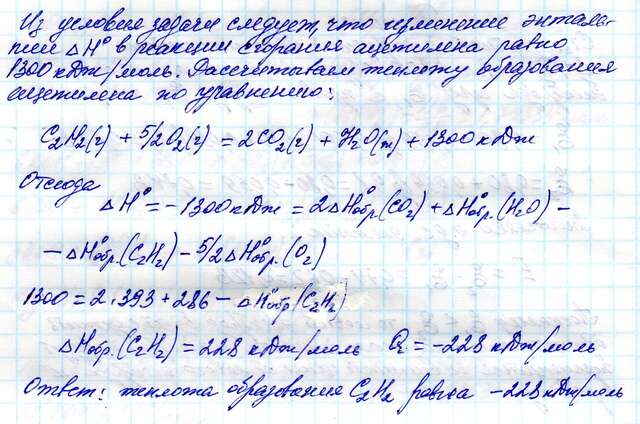 Из условия задачи следует, что изменение энталь-
пии ΔH° в реакции сгорания ацетилена равно
1300 кДж/моль. Рассчитываем теплоту образования
ацетилена по уравнению:
C₂H₂(г) + 5/2O₂(г) = 2CO₂(г) + H₂O(ж) + 1300 кДж
Отсюда
ΔH° = -1300 кДж = 2ΔH°обр.(CO₂) + ΔH°обр.(H₂O) –
– ΔH°обр.(C₂H₂) – 5/2ΔH°обр.(O₂)
1300 = 2·393 + 286 – ΔH°обр(C₂H₂)
ΔHобр.(C₂H₂) = 228 кДж/моль Q = -228 кДж/моль
Ответ: теплота образования C₂H₂ равна -228 кДж/моль